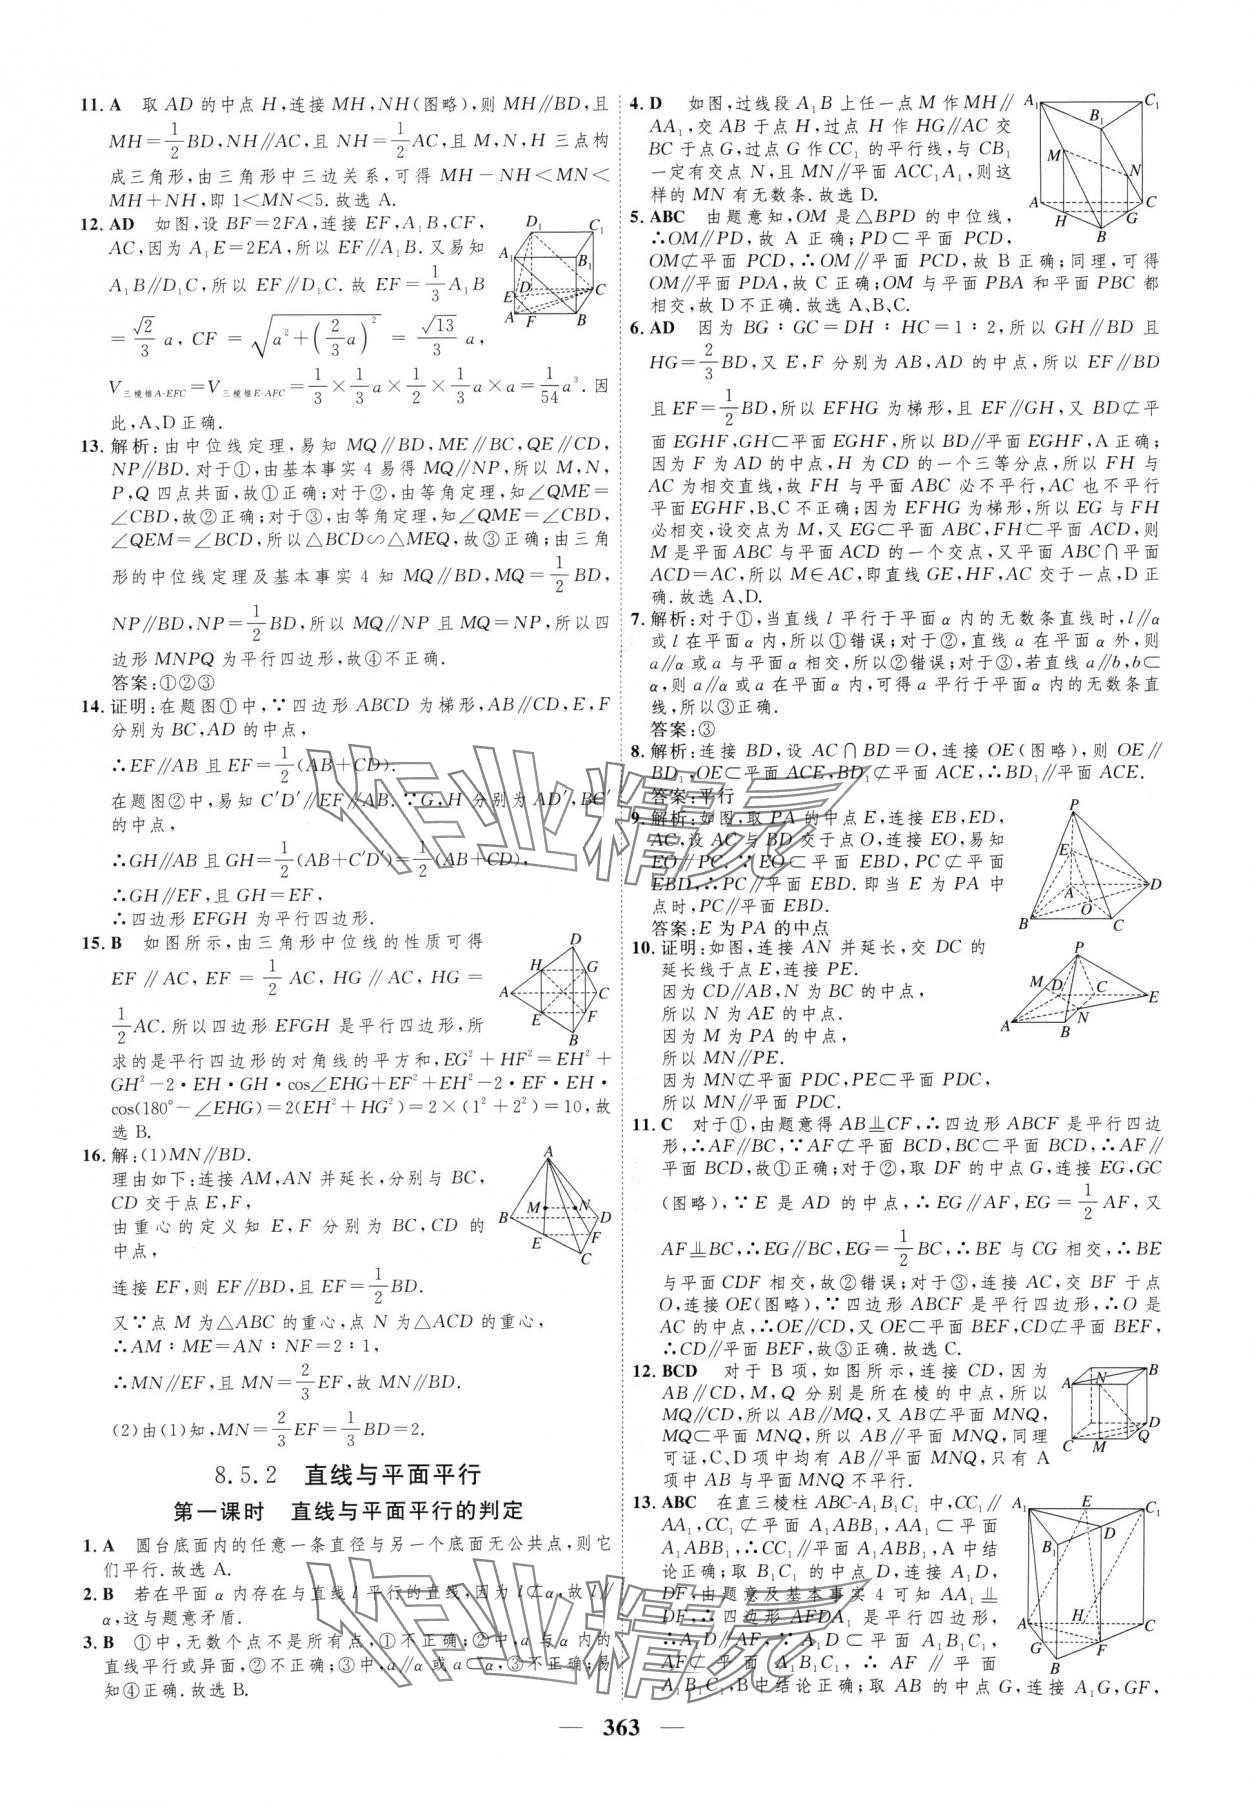 11. A 取 AD 的中点 H,连接 MH,NH(图略),则 MH∥BD,且
MH=1/2BD,NH∥AC,且 NH=1/2AC,且 M,N,H 三点构
成三角形,由三角形中三边关系,可得 MH-NH<MN<
MH+NH,即 1<MN<5.故选 A.
12. AD 如图,设 BF=2FA,连接 EF,A₁B,CF,
AC,因为 A₁E=2EA,所以 EF∥A₁B.又易知
A₁B∥D₁C,所以 EF∥D₁C.故 EF=1/3A₁B
=√2/3 a,CF=√(a²+(2/3a)²)=√13/3 a,
V三棱锥A-EFC=V三棱锥E-AFC=1/3×1/3a×1/2×1/3a×a=1/54a³.因
此,A、D正确.
13. 解析:由中位线定理,易知 MQ∥BD,ME∥BC,QE∥CD,
NP∥BD.对于①,由基本事实 4 易得 MQ∥NP,所以 M,N,
P,Q 四点共面,故①正确;对于②,由等角定理,知∠QME=
∠CBD,故②正确;对于③,由等角定理,知∠QME=∠CBD,
∠QEM=∠BCD,所以△BCD∽△MEQ,故③正确;由三角
形的中位线定理及基本事实 4 知 MQ∥BD,MQ=1/2BD,
NP∥BD,NP=1/2BD,所以 MQ∥NP 且 MQ=NP,所以四
边形 MNPQ 为平行四边形,故④不正确.
答案:①②③
14. 证明:在题图①中,∵四边形 ABCD 为梯形,AB∥CD,E,F
分别为 BC,AD 的中点,
∴EF∥AB 且 EF=1/2(AB+CD).
在题图②中,易知 C′D′∥EF∥AB.∵G,H 分别为 AD′,BC′
的中点,
∴GH∥AB 且 GH=1/2(AB+C′D′)=1/2(AB+CD),
∴GH∥EF,且 GH=EF,
∴四边形 EFGH 为平行四边形.
15. B 如图所示,由三角形中位线的性质可得
EF∥AC,EF=1/2AC,HG∥AC,HG=
1/2AC.所以四边形 EFGH 是平行四边形,所
求的是平行四边形的对角线的平方和,EG²+HF²=EH²+
GH²-2·EH·GH·cos∠EHG+EF²+EH²-2·EF·EH·
cos(180°-∠EHG)=2(EH²+HG²)=2×(1²+2²)=10,故
选 B.
16. 解:(1)MN∥BD.
理由如下:连接 AM,AN 并延长,分别与 BC,
CD 交于点 E,F,
由重心的定义知 E,F 分别为 BC,CD 的
中点,
连接 EF,则 EF∥BD,且 EF=1/2BD.
又∵点 M 为△ABC 的重心,点 N 为△ACD 的重心,
∴AM∶ME=AN∶NF=2∶1,
∴MN∥EF,且 MN=2/3EF,故 MN∥BD.
(2)由(1)知,MN=2/3EF=1/3BD=2.
8.5.2 直线与平面平行
第一课时 直线与平面平行的判定
1. A 圆台底面内的任意一条直径与另一个底面无公共点,则它
们平行.故选 A.
2. B 若在平面 α 内存在与直线 l 平行的直线,因为 l⊄α,故 l∥
α,这与题意矛盾.
3. B ①中,无数个点不是所有点,①不正确;②中,a 与 α 内的
直线平行或异面,②不正确;③中,a∥α 或 a⊂α,③不正确;易
知④正确.故选 B.
4. D 如图,过线段 A₁B 上任一点 M 作 MH∥
AA₁,交 AB 于点 H,过点 H 作 HG∥AC 交
BC 于点 G,过点 G 作 CC₁ 的平行线,与 CB₁
一定有交点 N,且 MN∥平面 ACC₁A₁,则这
样的 MN 有无数条.故选 D.
5. ABC 由题意知,OM 是△BPD 的中位线,
∴OM∥PD,故 A 正确;PD⊂平面 PCD,
OM⊄平面 PCD,∴OM∥平面 PCD,故 B 正确;同理,可得
OM∥平面 PDA,故 C 正确;OM 与平面 PBA 和平面 PBC 都
相交,故 D 不正确.故选 A、B、C.
6. AD 因为 BG∶GC=DH∶HC=1∶2,所以 GH∥BD 且
HG=2/3BD,又 E,F 分别为 AB,AD 的中点,所以 EF∥BD
且 EF=1/2BD,所以 EFHG 为梯形,且 EF∥GH,又 BD⊄平
面 EGHF,GH⊂平面 EGHF,所以 BD∥平面 EGHF,A 正确;
因为 F 为 AD 的中点,H 为 CD 的一个三等分点,所以 FH 与
AC 为相交直线,故 FH 与平面 ABC 必不平行,AC 也不平行
平面 EGHF,B、C 不正确;因为 EFHG 为梯形,所以 EG 与 FH
必相交,设交点为 M,又 EG⊂平面 ABC,FH⊂平面 ACD,则
M 是平面 ABC 与平面 ACD 的一个交点,又平面 ABC∩平面
ACD=AC,所以 M∈AC,即直线 GE,HF,AC 交于一点,D 正
确.故选 A、D.
7. 解析:对于①,当直线 l 平行于平面 α 内的无数条直线时,l∥α
或 l 在平面 α 内,所以①错误;对于②,直线 a 在平面 α 外,则
a∥α 或 a 与平面 α 相交,所以②错误;对于③,若直线 a∥b,b⊂
α,则 a∥α 或 a 在平面 α 内,可得 a 平行于平面 α 内的无数条直
线,所以③正确.
答案:③
8. 解析:连接 BD,设 AC∩BD=O,连接 OE(图略),则 OE∥
BD₁,OE⊂平面 ACE,BD₁⊄平面 ACE,∴BD₁∥平面 ACE.
答案:平行
9. 解析:如图,取 PA 的中点 E,连接 EB,ED,
AC,设 AC 与 BD 交于点 O,连接 EO,易知
EO∥PC.∵EO⊂平面 EBD,PC⊄平面
EBD,∴PC∥平面 EBD.即当 E 为 PA 中
点时,PC∥平面 EBD.
答案:E 为 PA 的中点
10. 证明:如图,连接 AN 并延长,交 DC 的
延长线于点 E,连接 PE.
因为 CD∥AB,N 为 BC 的中点,
所以 N 为 AE 的中点.
因为 M 为 PA 的中点,
所以 MN∥PE.
因为 MN⊄平面 PDC,PE⊂平面 PDC,
所以 MN∥平面 PDC.
11. C 对于①,由题意得 AB⫫CF,∴四边形 ABCF 是平行四边
形,∴AF∥BC,∵AF⊄平面 BCD,BC⊂平面 BCD,∴AF∥
平面 BCD,故①正确;对于②,取 DF 的中点 G,连接 EG,GC
(图略),∵E 是 AD 的中点,∴EG∥AF,EG=1/2AF,又
AF⫫BC,∴EG∥BC,EG=1/2BC,∴BE 与 CG 相交,∴BE
与平面 CDF 相交,故②错误;对于③,连接 AC,交 BF 于点
O,连接 OE(图略),∵四边形 ABCF 是平行四边形,∴O 是
AC 的中点,∴OE∥CD,又 OE⊂平面 BEF,CD⊄平面 BEF,
∴CD∥平面 BEF,故③正确.故选 C.
12. BCD 对于 B 项,如图所示,连接 CD,因为
AB∥CD,M,Q 分别是所在棱的中点,所以
MQ∥CD,所以 AB∥MQ,又 AB⊄平面 MNQ,
MQ⊂平面 MNQ,所以 AB∥平面 MNQ,同理
可证,C、D 项中均有 AB∥平面 MNQ,只有 A
项中 AB 与平面 MNQ 不平行.
13. ABC 在直三棱柱 ABC-A₁B₁C₁ 中,CC₁∥
AA₁,CC₁⊄平面 A₁ABB₁,AA₁⊂平面
A₁ABB₁,∴CC₁∥平面 A₁ABB₁,A 中结
论正确;取 B₁C₁ 的中点 D,连接 A₁D,
DF,由题意及基本事实 4 可知 AA₁⫫
DF,∴四边形 AFDA₁ 是平行四边形,
∴A₁D∥AF,∵A₁D⊂平面 A₁B₁C₁,
AF⊄平面 A₁B₁C₁,∴AF∥平面
A₁B₁C₁,B中结论正确;取 AB 的中点 G,连接 A₁G,GF,
— 363 —